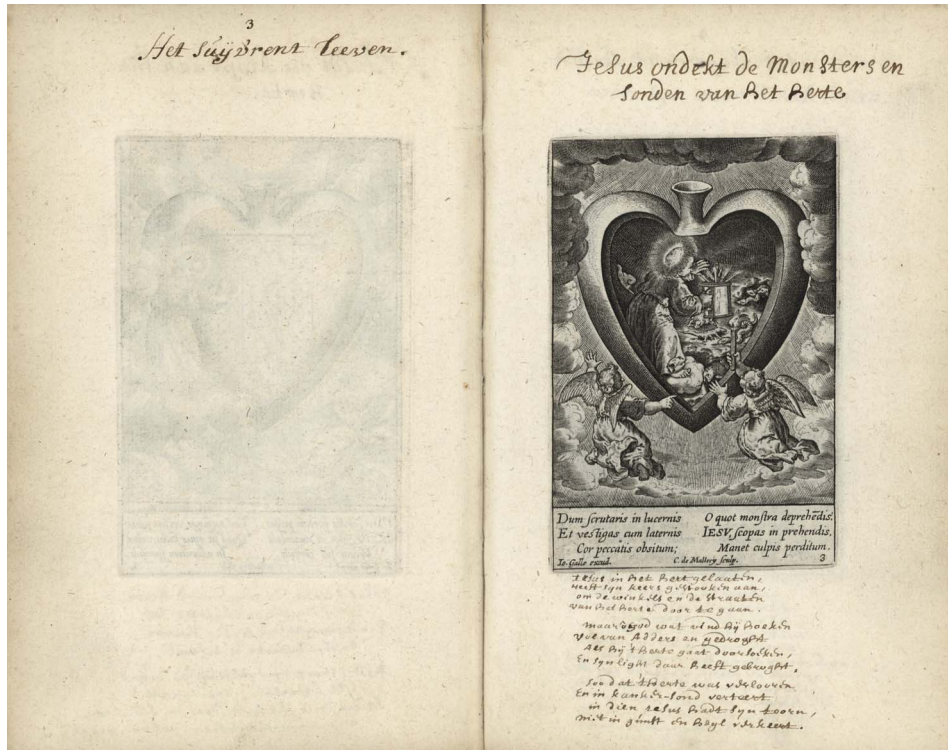 3
Het suÿvrent leeven.
Jesus ondekt de Monsters en
sonden van het herte
Dum scrutaris in lucernis
Et vestigas cum laternis
Cor peccatis obsitum;
O quot monstra deprehēdis.
IESV, scopas in prehendis,
Manet culpis perditum.
Ie. Galle excud.
C. de Mallery sculp.
3
Jesus in het hert gelaaten,
heeft syn keers ontstooken aan,
om de winkels en de straaten
van het herte door te gaan.
maar o god wat vind hy hoeken
vol van Adders en gedroght
Als hy 't herte gaat doorsoeken,
En syn light daar heeft gebroght.
soo dat 't herte was verlooren
En in kanker-sond verteert
in dien Jesus hadt syn toorn,
niet in gunst en heyl verkeert.